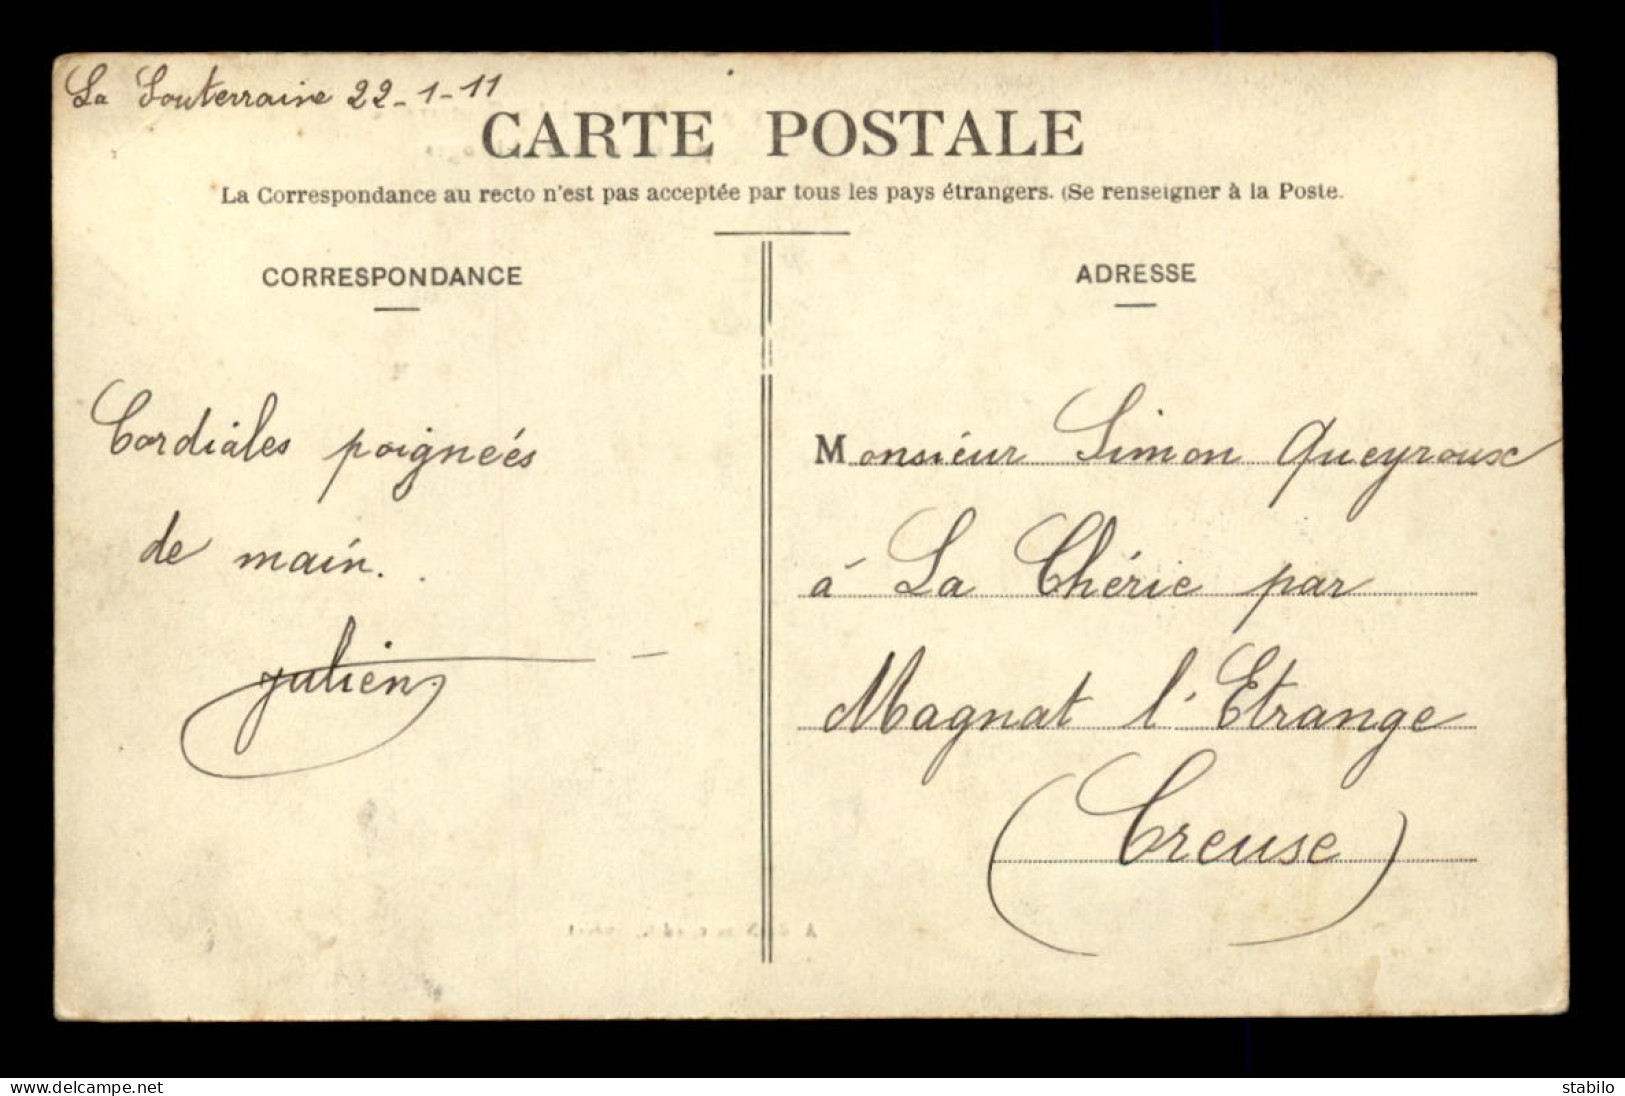 La Souterraine 22-1-11
CARTE POSTALE
La Correspondance au recto n'est pas acceptée par tous les pays étrangers. (Se renseigner à la Poste.
CORRESPONDANCE
Cordiales poigneés
de main.
julien
ADRESSE
Monsieur Simon Queyroux
à La Chérie par
Magnat l'Etrange
(Creuse)
www.delcampe.net
stabilo